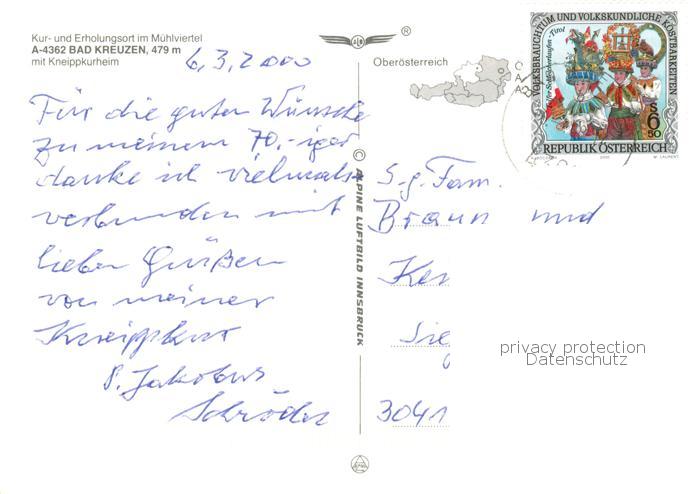 Kur- und Erholungsort im Mühlviertel
A-4362 BAD KREUZEN, 479 m
mit Kneippkurheim
6.3.2000
Für die guten Wünsche
zu meinem 70.-iger
danke ich vielmals
verbunden mit
lieben Grüßen
von meiner
Kneippkur
P. Jakobus
Schröder
®
Oberösterreich
© ALPINE LUFTBILD INNSBRUCK
VOLKSBRAUCHTUM UND VOLKSKUNDLICHE KOSTBARKEITEN
S 6 50
REPUBLIK ÖSTERREICH
2000
S.g. Fam.
Braun und
Sieg
3041
privacy protection
Datenschutz